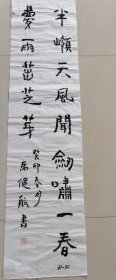 半嶺天風聞劍嘯一春
夢雨茁芝芽
癸卯春月
健
書